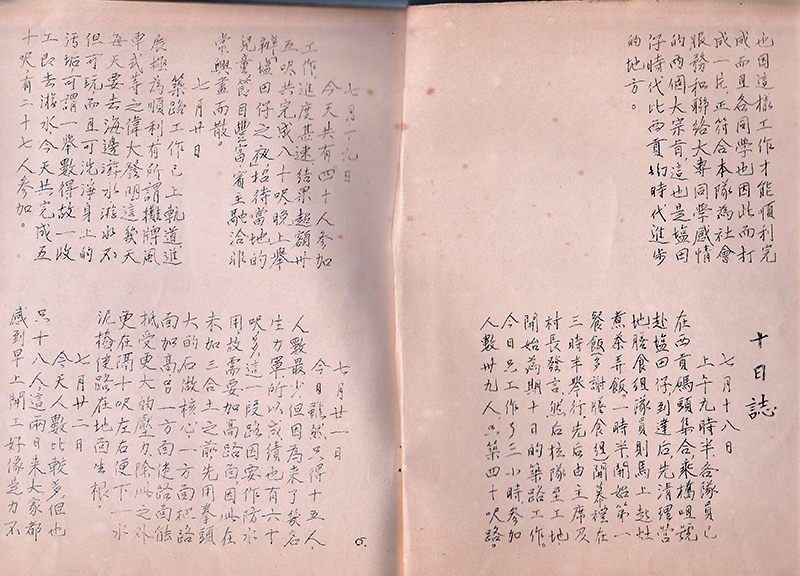 也因這樣工作才能順利完
成而且各同學也因此而打
成一片正符合本隊為社會
服務和聯絡大專同學感情
的兩個大宗旨,這也是塩田
仔時代比西貢的時代進步
的地方。
十日誌
七月十八日
上午九時半各隊員已
在西貢碼頭集合乘橋咀號
赴塩田仔,到達后先清理營
地膳食組隊員則馬上起灶
煮茶弄飯,一時半開始第一
餐飯(多謝膳食組)開幕禮在
三時半舉行先后由主席及
村長發言,然后隊至工地,
開始為期十日的築路工作。
今日只工作了三小時參加
人數卅九人,只築四十呎路。
七月十九日
今天共有四十人參加
工作,進度甚速,結果超額卅
五呎共完成八十呎晚上舉
辦塩田仔之夜招待當地的
兒童節目豐富賓主融洽非
常興盡而散。
七月廿日
築路工作已上軌道進
展極為順利有所謂攤牌風
車式等之偉大發明這幾天
每天要去海邊游水游水不
但可玩而且可洗淨身上的
污垢可謂一舉數得故一收
工即去游水今天共完成五
十呎有二十七人參加。
七月廿一日
今日雖然只得十五人,
人數最少,但因為來了幾名
生力軍所以成績也有六十
呎多這一段路因要作防水
用故需要加高路面因此在
未加三合土之前先用拳頭
大的石做核心一方面把路
面加高另一方面使路面能
抵受更大的壓力除此之外
更在隔十呎左右便下一水
泥樁使路在地面生根。
七月廿二日
今天人數比較多但也
只十八人這兩日來大家都
感到早上開工好像是力不
6.